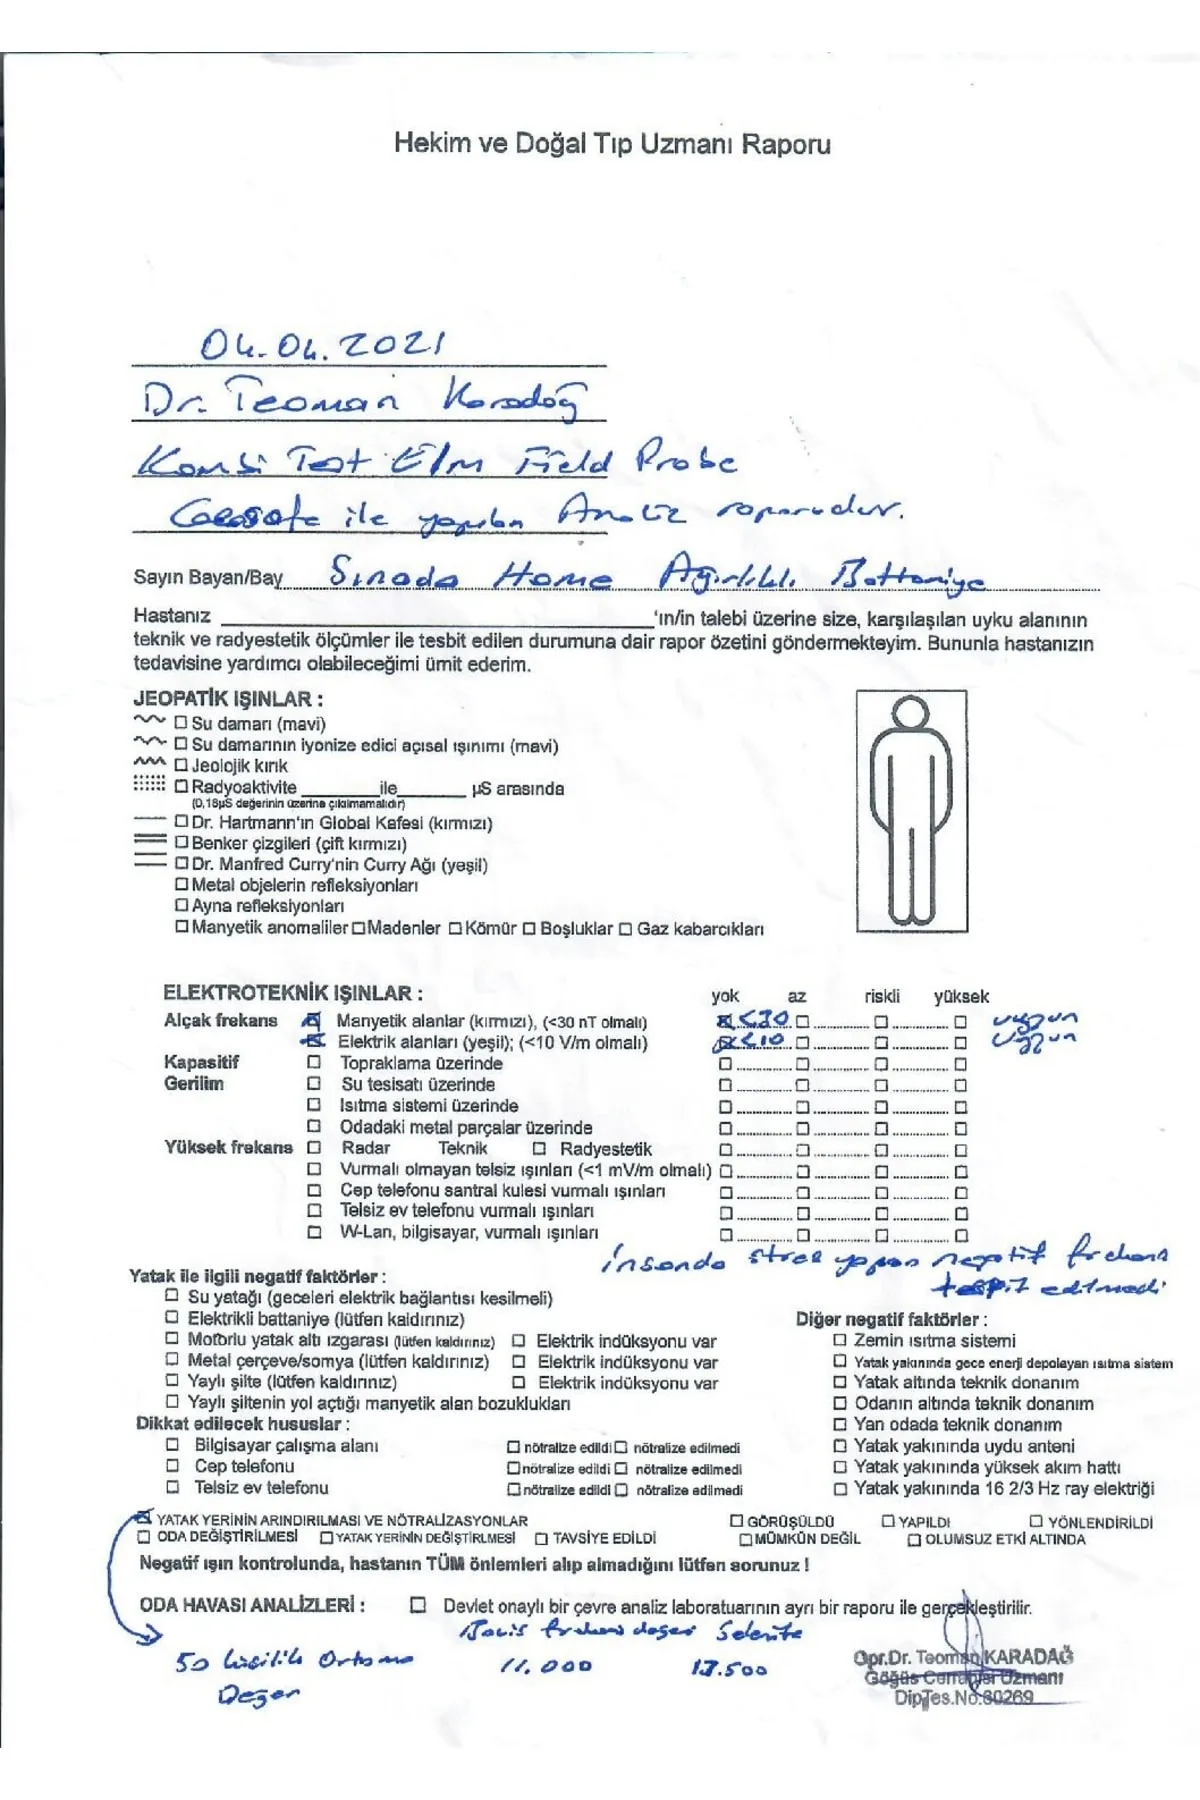 Hekim ve Doğal Tıp Uzmanı Raporu
04.04.2021
Dr. Teoman Karadağ
Kombi Test Elm Field Probe
Geosafe ile yapılan Analiz raporudur.
Sayın Bayan/Bay Sinada Home Ağırlıklı Battaniye
Hastanız 'ın/in talebi üzerine size, karşılaşılan uyku alanının
teknik ve radyestetik ölçümler ile tesbit edilen durumuna dair rapor özetini göndermekteyim. Bununla hastanızın
tedavisine yardımcı olabileceğimi ümit ederim.
JEOPATİK IŞINLAR :
Su damarı (mavi)
Su damarının iyonize edici açısal ışınımı (mavi)
Jeolojik kırık
Radyoaktivite ile µS arasında
(0,18µS değerinin üzerine çıkılmamalıdır)
Dr. Hartmann'ın Global Kafesi (kırmızı)
Benker çizgileri (çift kırmızı)
Dr. Manfred Curry'nin Curry Ağı (yeşil)
Metal objelerin refleksiyonları
Ayna refleksiyonları
Manyetik anomaliler Madenler Kömür Boşluklar Gaz kabarcıkları
ELEKTROTEKNİK IŞINLAR : yok az riskli yüksek
Alçak frekans Manyetik alanlar (kırmızı), (<30 nT olmalı) <30 uygun
Elektrik alanları (yeşil); (<10 V/m olmalı) <10 uygun
Kapasitif Topraklama üzerinde
Gerilim Su tesisatı üzerinde
Isıtma sistemi üzerinde
Odadaki metal parçalar üzerinde
Yüksek frekans Radar Teknik Radyestetik
Vurmalı olmayan telsiz ışınları (<1 mV/m olmalı)
Cep telefonu santral kulesi vurmalı ışınları
Telsiz ev telefonu vurmalı ışınları
W-Lan, bilgisayar, vurmalı ışınları
insanda stres yapan negatif frekans
tespit edilmedi
Yatak ile ilgili negatif faktörler :
Su yatağı (geceleri elektrik bağlantısı kesilmeli)
Elektrikli battaniye (lütfen kaldırınız)
Motorlu yatak altı ızgarası (lütfen kaldırınız) Elektrik indüksyonu var
Metal çerçeve/somya (lütfen kaldırınız) Elektrik indüksyonu var
Yaylı şilte (lütfen kaldırınız) Elektrik indüksyonu var
Yaylı şiltenin yol açtığı manyetik alan bozuklukları
Diğer negatif faktörler :
Zemin ısıtma sistemi
Yatak yakınında gece enerji depolayan ısıtma sistem
Yatak altında teknik donanım
Odanın altında teknik donanım
Yan odada teknik donanım
Yatak yakınında uydu anteni
Yatak yakınında yüksek akım hattı
Yatak yakınında 16 2/3 Hz ray elektriği
Dikkat edilecek hususlar :
Bilgisayar çalışma alanı nötralize edildi nötralize edilmedi
Cep telefonu nötralize edildi nötralize edilmedi
Telsiz ev telefonu nötralize edildi nötralize edilmedi
YATAK YERİNİN ARINDIRILMASI VE NÖTRALİZASYONLAR GÖRÜŞÜLDÜ YAPILDI YÖNLENDİRİLDİ
ODA DEĞİŞTİRİLMESİ YATAK YERİNİN DEĞİŞTİRLMESİ TAVSİYE EDİLDİ MÜMKÜN DEĞİL OLUMSUZ ETKİ ALTINDA
Negatif ışın kontrolunda, hastanın TÜM önlemleri alıp almadığını lütfen sorunuz !
ODA HAVASI ANALİZLERİ : Devlet onaylı bir çevre analiz laboratuarının ayrı bir raporu ile gerçekleştirilir.
Bovis frekans değeri Selenite
50 kişilik Ortama 11.000 17.500
Değer
Opr.Dr. Teoman KARADAĞ
Göğüs Cerrahisi Uzmanı
Dip.Tes.No:60269